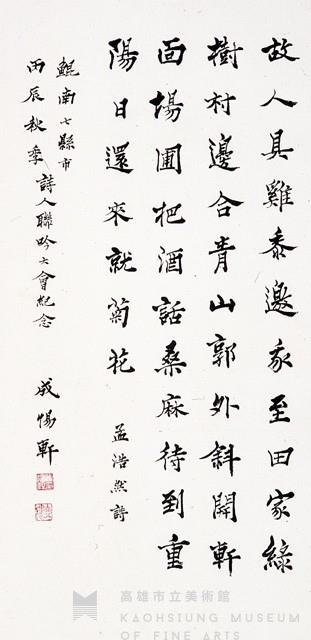 故人具雞黍邀我至田家綠
樹村邊合青山郭外斜開軒
面場圃把酒話桑麻待到重
陽日還來就菊花
孟浩然詩
鯤南七縣市
詩人聯吟大會紀念
丙辰秋季
成惕軒
高雄市立美術館
KAOHSIUNG MUSEUM
OF FINE ARTS